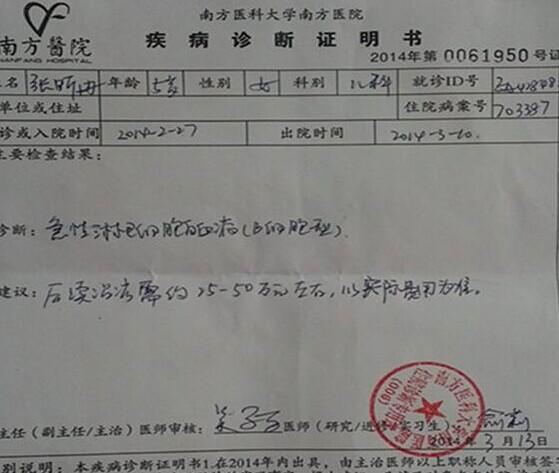 南方医科大学南方医院
南方醫院
NANFANG HOSPITAL
疾病诊断证明书
2014年第0061950号证
名 年龄 5岁 性别 女 科别 儿科 就诊ID号
单位或住址 住院病案号 703387
诊或入院时间 2014-2-27 出院时间 2014-3-10.
主要检查结果:
诊断: 急性淋巴细胞白血病(B细胞型).
建议: 后续治疗需约25-50万元左右,以实际费用为准。
主任(副主任/主治)医师审核: 医师(研究/进修/实习生):
2014年3月13日
别说明:本疾病诊断证明书1.在2014年内出具,由主治医师以上职称人员审核签